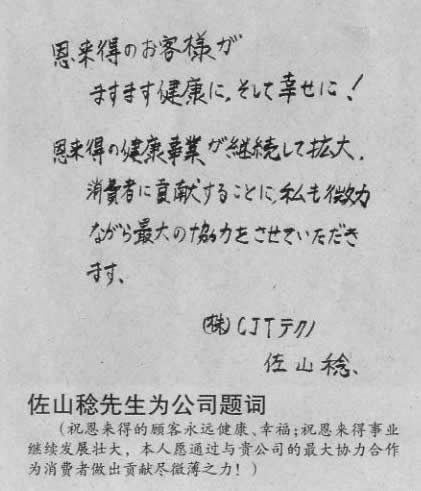 恩来得のお客様が
ますます健康に、そして幸せに!
恩来得の健康事業が継続して拡大、
消費者に貢献することに、私も微力
ながら最大の協力をさせていただき
ます、
(株)CJTテクノ
佐山稔、
佐山稔先生为公司题词
(祝恩来得的顾客永远健康、幸福;祝恩来得事业
继续发展壮大,本人愿通过与贵公司的最大协力合作
为消费者做出贡献尽微薄之力!)